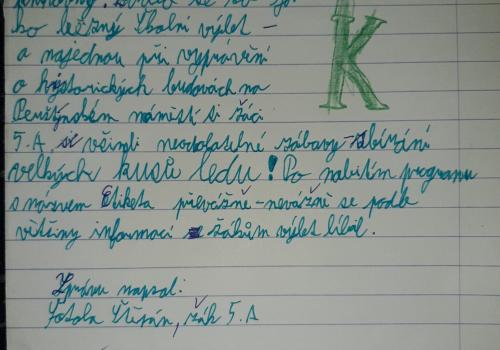 ko běžný školní výlet –
a najednou při vyprávění
o historických budovách na
náměstí si žáci
5.A. si všimli neodolatelné zábavy – sbírání
velkých kusů ledu! Po nabitém programu
s názvem Etiketa převážně – nevážně se podle
většiny informací žákům výlet líbil.
Zprávu napsal:
Štěpán, žák 5.A
K